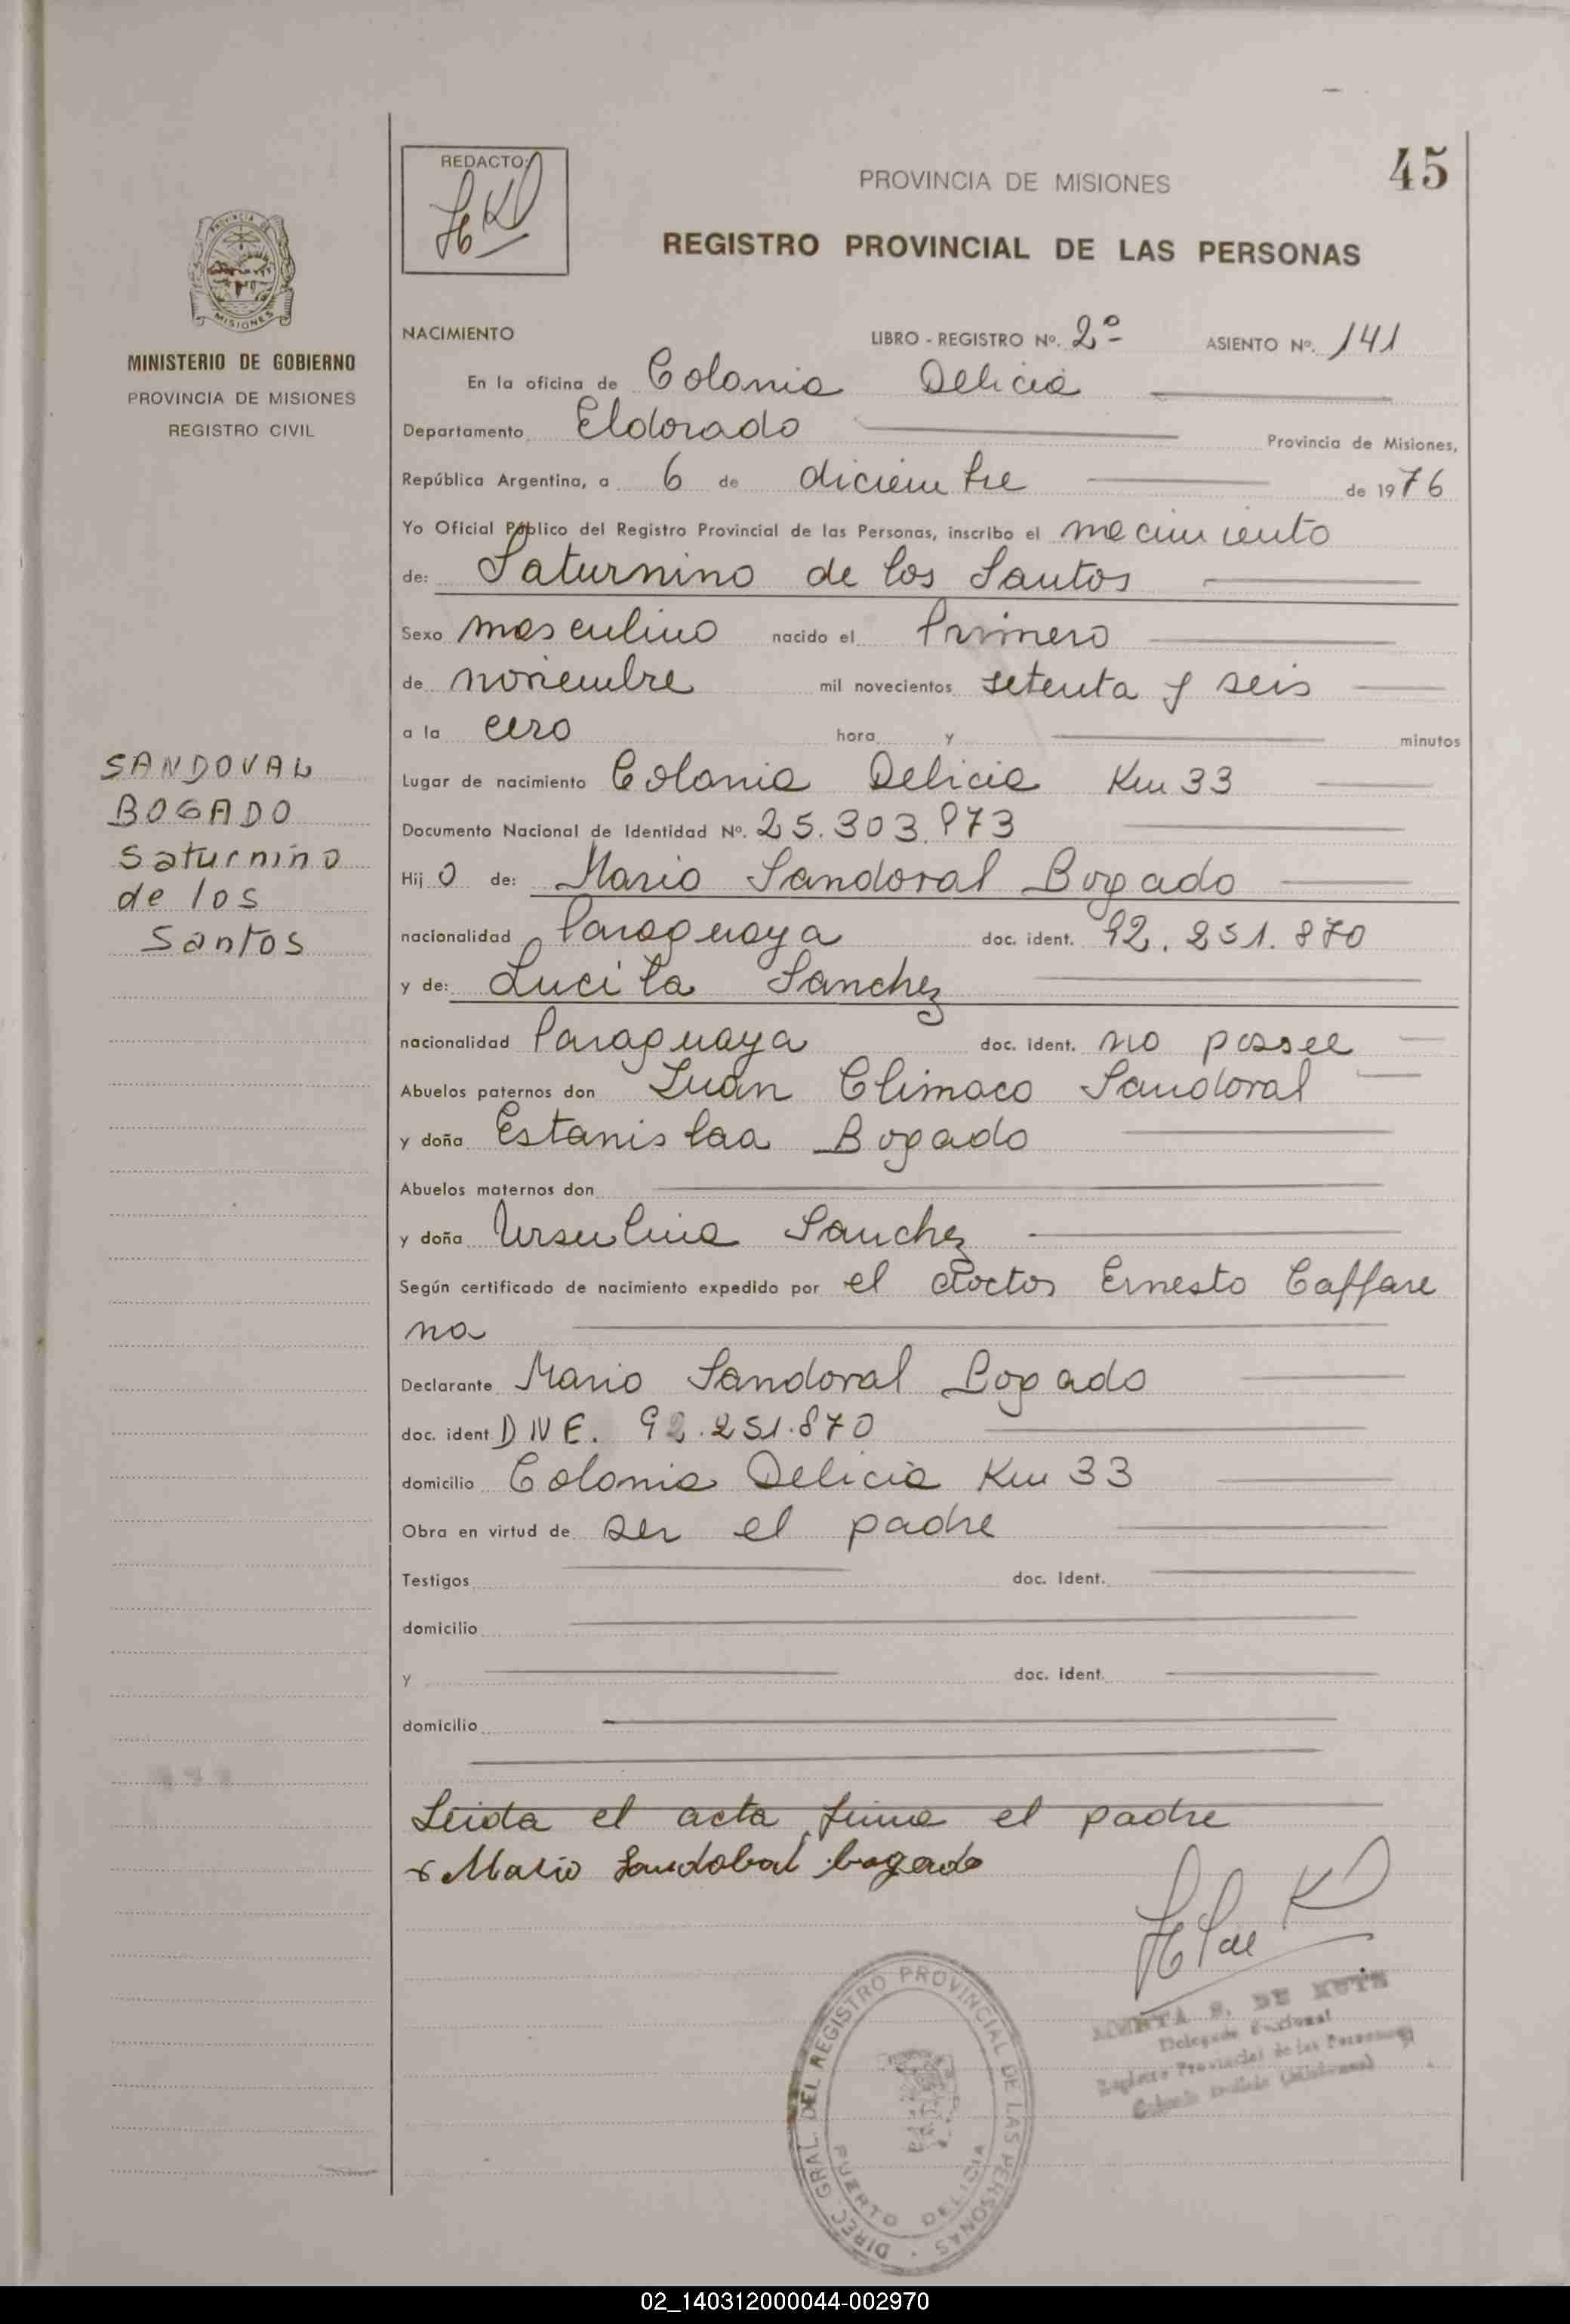 45
REDACTO:
PROVINCIA DE MISIONES
REGISTRO PROVINCIAL DE LAS PERSONAS
PROVINCIA DE
MISIONES
MINISTERIO DE GOBIERNO
PROVINCIA DE MISIONES
REGISTRO CIVIL
SANDOVAL
BOGADO
Saturnino
de los
Santos
NACIMIENTO LIBRO - REGISTRO Nº. 2º ASIENTO Nº. 141
En la oficina de Colonia Delicia
Departamento Eldorado Provincia de Misiones,
República Argentina, a 6 de diciembre de 1976
Yo Oficial Público del Registro Provincial de las Personas, inscribo el nacimiento
de: Saturnino de los Santos
Sexo masculino nacido el Primero
de noviembre mil novecientos setenta y seis
a la cero hora y minutos
Lugar de nacimiento Colonia Delicia Km 33
Documento Nacional de Identidad Nº. 25.303.973
Hij o de: Mario Sandoval Bogado
nacionalidad Paraguaya doc. ident. 92.251.870
y de: Lucila Sanchez
nacionalidad Paraguaya doc. ident. no posee
Abuelos paternos don Juan Climaco Sandoval
y doña Estanislaa Bogado
Abuelos maternos don
y doña Ursulina Sanchez
Según certificado de nacimiento expedido por el doctor Ernesto Caffare
na
Declarante Mario Sandoval Bogado
doc. ident. DNE. 92.251.870
domicilio Colonia Delicia Km 33
Obra en virtud de ser el padre
Testigos doc. ident.
domicilio
y doc. ident.
domicilio
Leida el acta firma el padre
x Mario Sandobal bogado
DIREC. GRAL. DEL REGISTRO PROVINCIAL DE LAS PERSONAS
PUERTO DELICIA
DE
Delegada Seccional
Registro Provincial de las Personas
Colonia Delicia (Misiones)
02_140312000044-002970